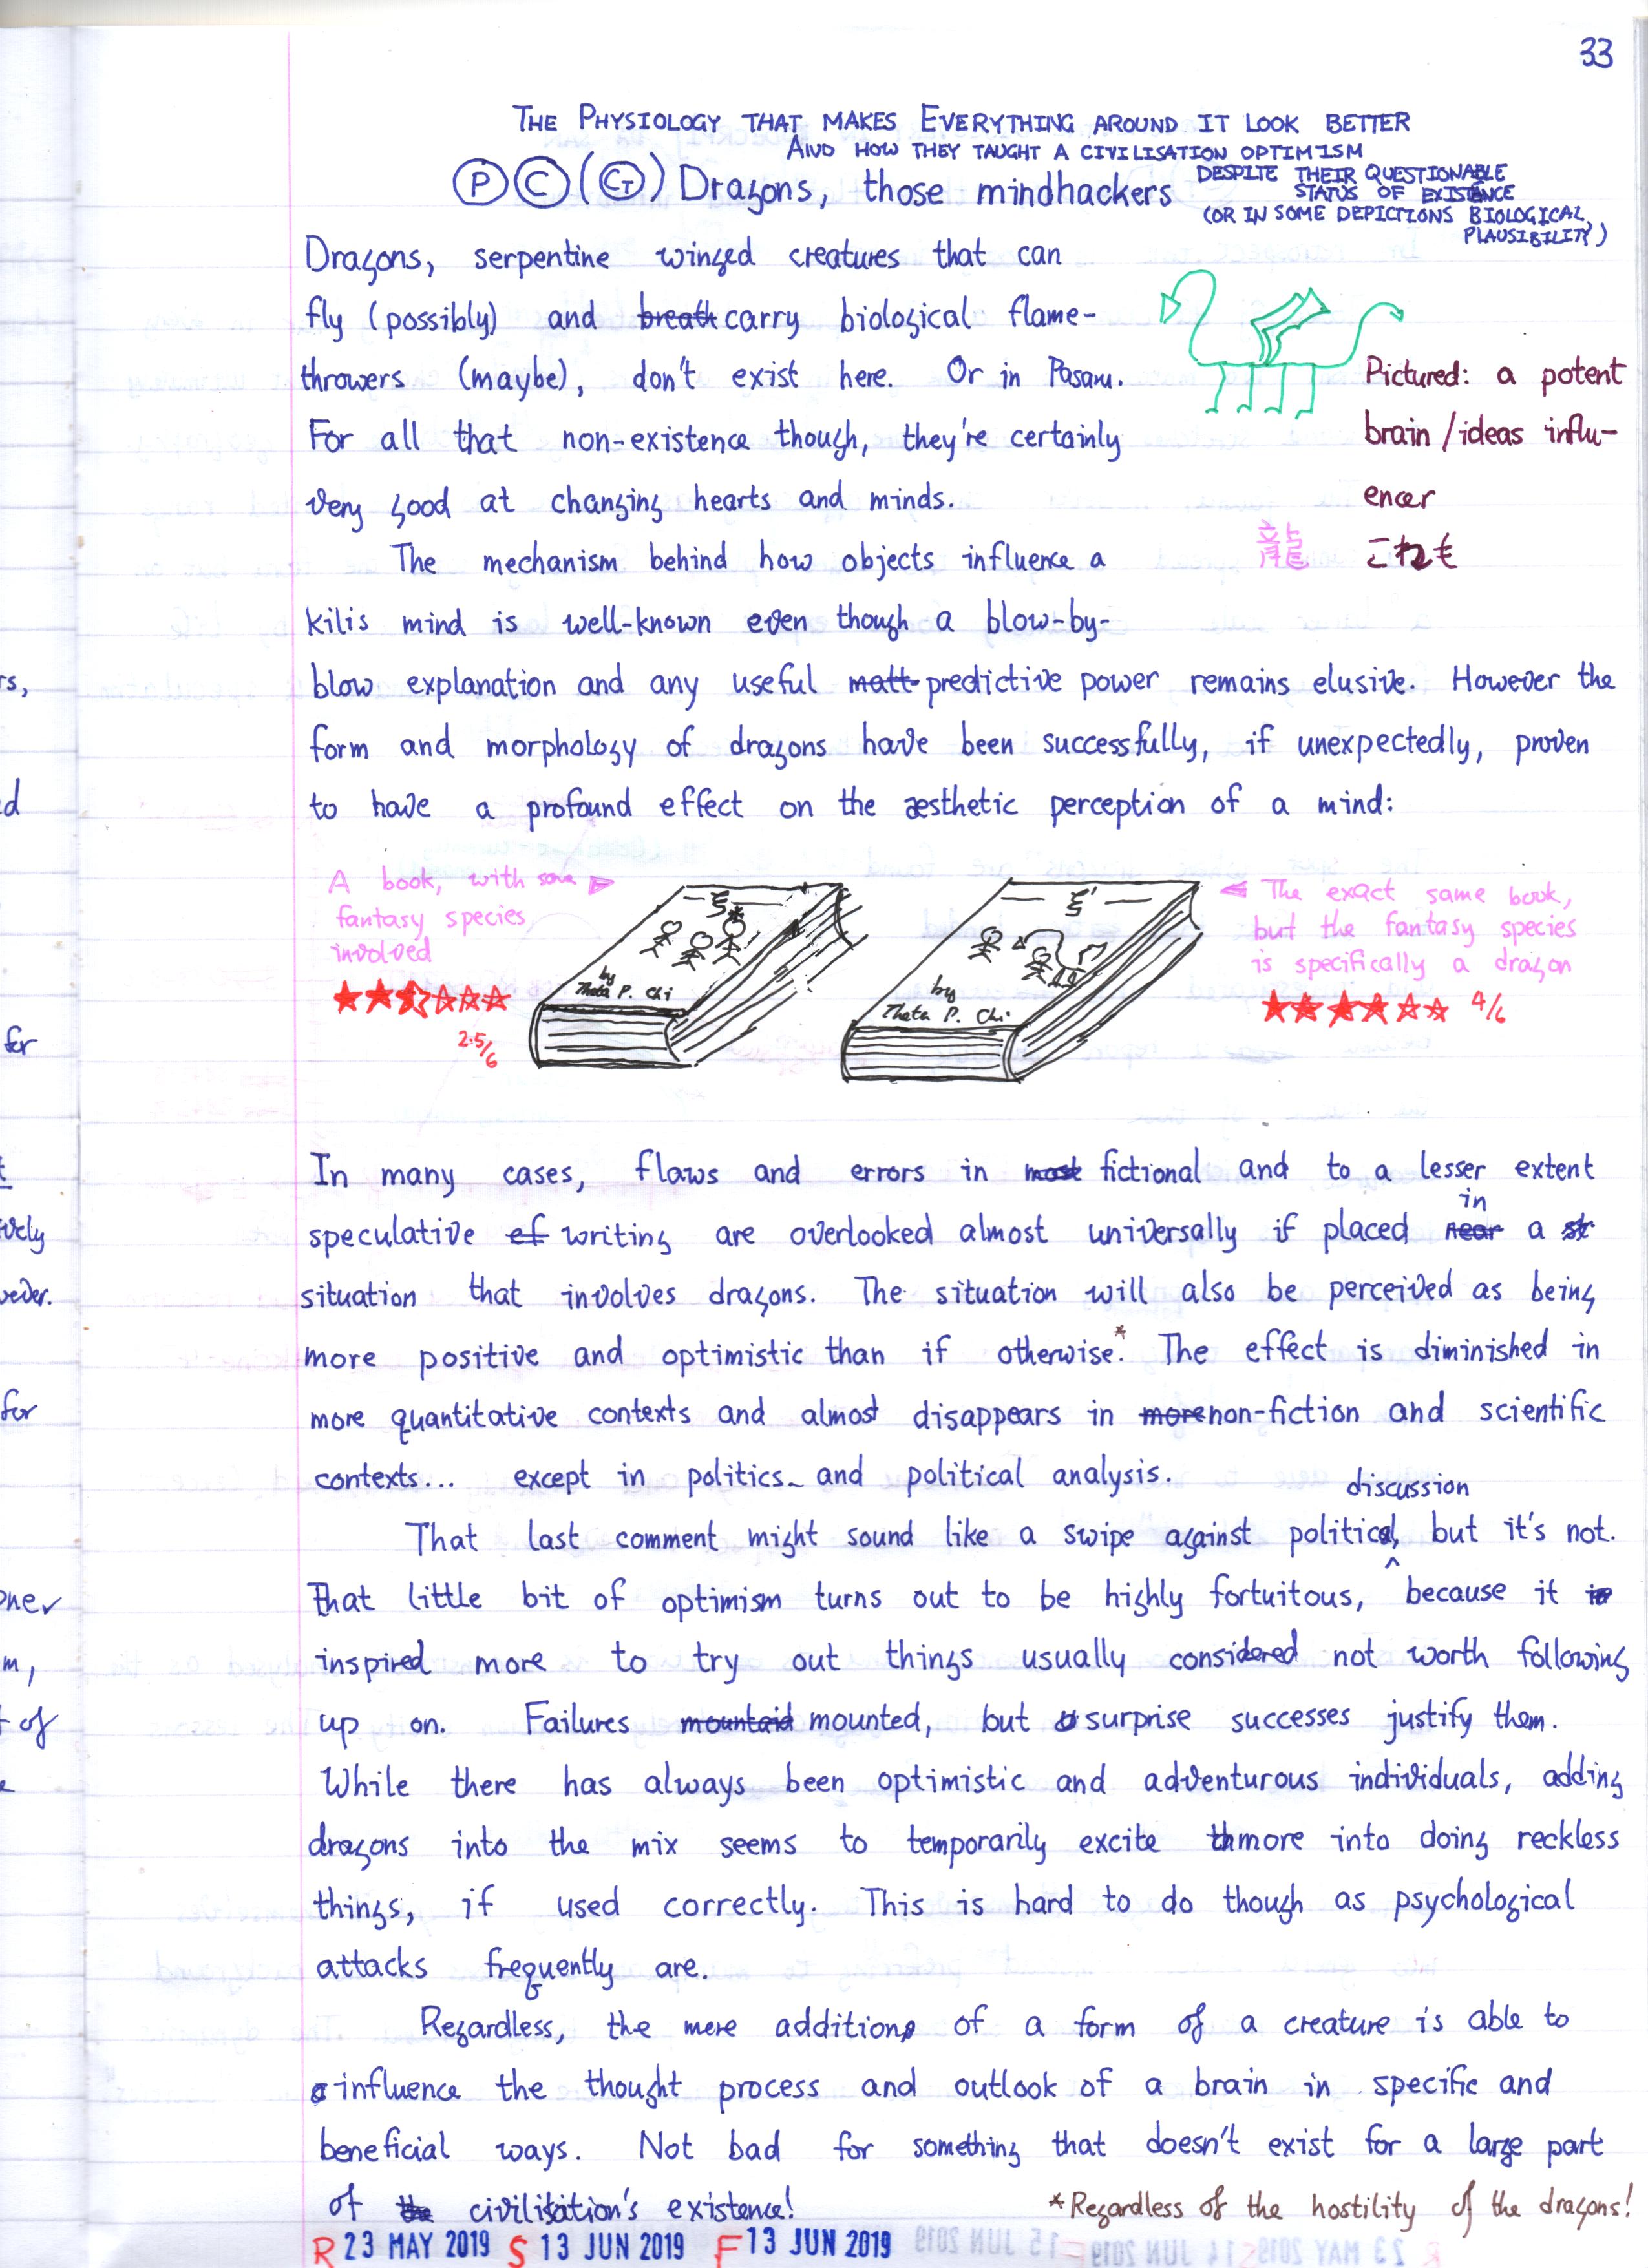 33
THE PHYSIOLOGY THAT MAKES EVERYTHING AROUND IT LOOK BETTER
AND HOW THEY TAUGHT A CIVILISATION OPTIMISM
DESPITE THEIR QUESTIONABLE
STATUS OF EXISTENCE
(OR IN SOME DEPICTIONS BIOLOGICAL
PLAUSIBILITY)
P C (CT) Dragons, those mindhackers
Dragons, serpentine winged creatures that can
fly (possibly) and breath carry biological flame-
throwers (maybe), don't exist here. Or in Pasaru.
For all that non-existence though, they're certainly
very good at changing hearts and minds.
Pictured: a potent
brain/ideas influ-
encer
龍 これも
The mechanism behind how objects influence a
kilis mind is well-known even though a blow-by-
blow explanation and any useful matt predictive power remains elusive. However the
form and morphology of dragons have been successfully, if unexpectedly, proven
to have a profound effect on the æsthetic perception of a mind:
A book, with some
fantasy species
involved
2.5/6
by
Theta P. Chi
ξ
by
Theta P. Chi
The exact same book,
but the fantasy species
is specifically a dragon
4/6
In many cases, flaws and errors in most fictional and to a lesser extent
speculative ef writing are overlooked almost universally if placed near in a st
situation that involves dragons. The situation will also be perceived as being
more positive and optimistic than if otherwise.* The effect is diminished in
more quantitative contexts and almost disappears in more non-fiction and scientific
contexts... except in politics and political analysis.
That last comment might sound like a swipe against political discussion, but it's not.
That little bit of optimism turns out to be highly fortuitous, because it in
inspired more to try out things usually considered not worth following
up on. Failures mountaid mounted, but surprise successes justify them.
While there has always been optimistic and adventurous individuals, adding
dragons into the mix seems to temporarily excite more into doing reckless
things, if used correctly. This is hard to do though as psychological
attacks frequently are.
Regardless, the mere addition of a form of a creature is able to
influence the thought process and outlook of a brain in specific and
beneficial ways. Not bad for something that doesn't exist for a large part
of the civilisation's existence!
*Regardless of the hostility of the dragons!
R 23 MAY 2019 S 13 JUN 2019 F 13 JUN 2019
rs,
ed
for
vely
for
oner
m,
of